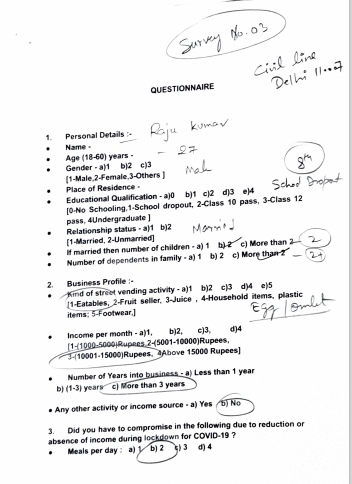 Survey No. 03
Civil line
Delhi 11...7
QUESTIONNAIRE
1. Personal Details :- Raju Kumar
• Name -
• Age (18-60) years - - 27
• Gender - a)1 b)2 c)3 Male
[1-Male,2-Female,3-Others ] 8th
• Place of Residence - School Dropout
• Educational Qualification - a)0 b)1 c)2 d)3 e)4
[0-No Schooling,1-School dropout, 2-Class 10 pass, 3-Class 12
pass, 4Undergraduate ]
• Relationship status - a)1 b)2 Married
[1-Married, 2-Unmarried]
• If married then number of children - a) 1 b) 2 c) More than 2 2
• Number of dependents in family - a) 1 b) 2 c) More than 2 - 2+
2. Business Profile :-
• Kind of street vending activity - a)1 b)2 c)3 d)4 e)5
[1-Eatables, 2-Fruit seller, 3-Juice , 4-Household items, plastic
items; 5-Footwear,] Egg / omlet
• Income per month - a)1, b)2, c)3, d)4
[1-(1000-5000)Rupees,2-(5001-10000)Rupees,
3-(10001-15000)Rupees, 4Above 15000 Rupees]
• Number of Years into business - a) Less than 1 year
b) (1-3) years c) More than 3 years
• Any other activity or income source - a) Yes b) No
3. Did you have to compromise in the following due to reduction or
absence of income during lockdown for COVID-19 ?
• Meals per day : a) 1 b) 2 c) 3 d) 4